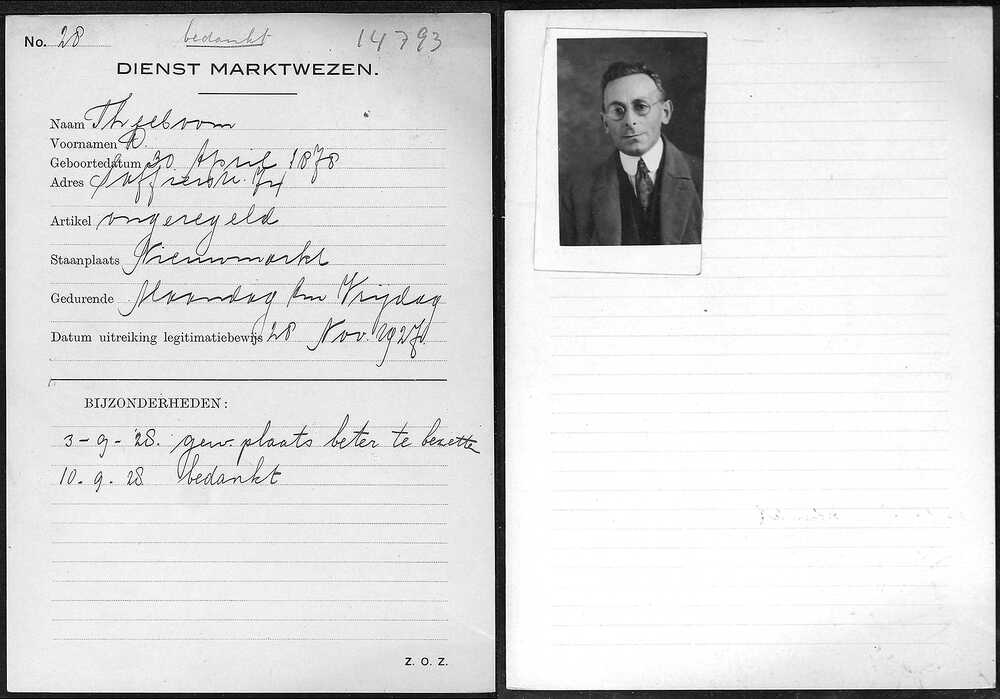 No. 28 bedankt 14793
DIENST MARKTWEZEN.
Naam Theeboom
Voornamen
Geboortedatum 30 April 1878
Adres Saffierstr. 74
Artikel ongeregeld
Staanplaats Nieuwmarkt
Gedurende Maandag t/m Vrijdag
Datum uitreiking legitimatiebewijs 28 Nov. 1927.
BIJZONDERHEDEN:
3-9-28. gew. plaats beter te bezetten
10.9.28 bedankt
Z. O. Z.